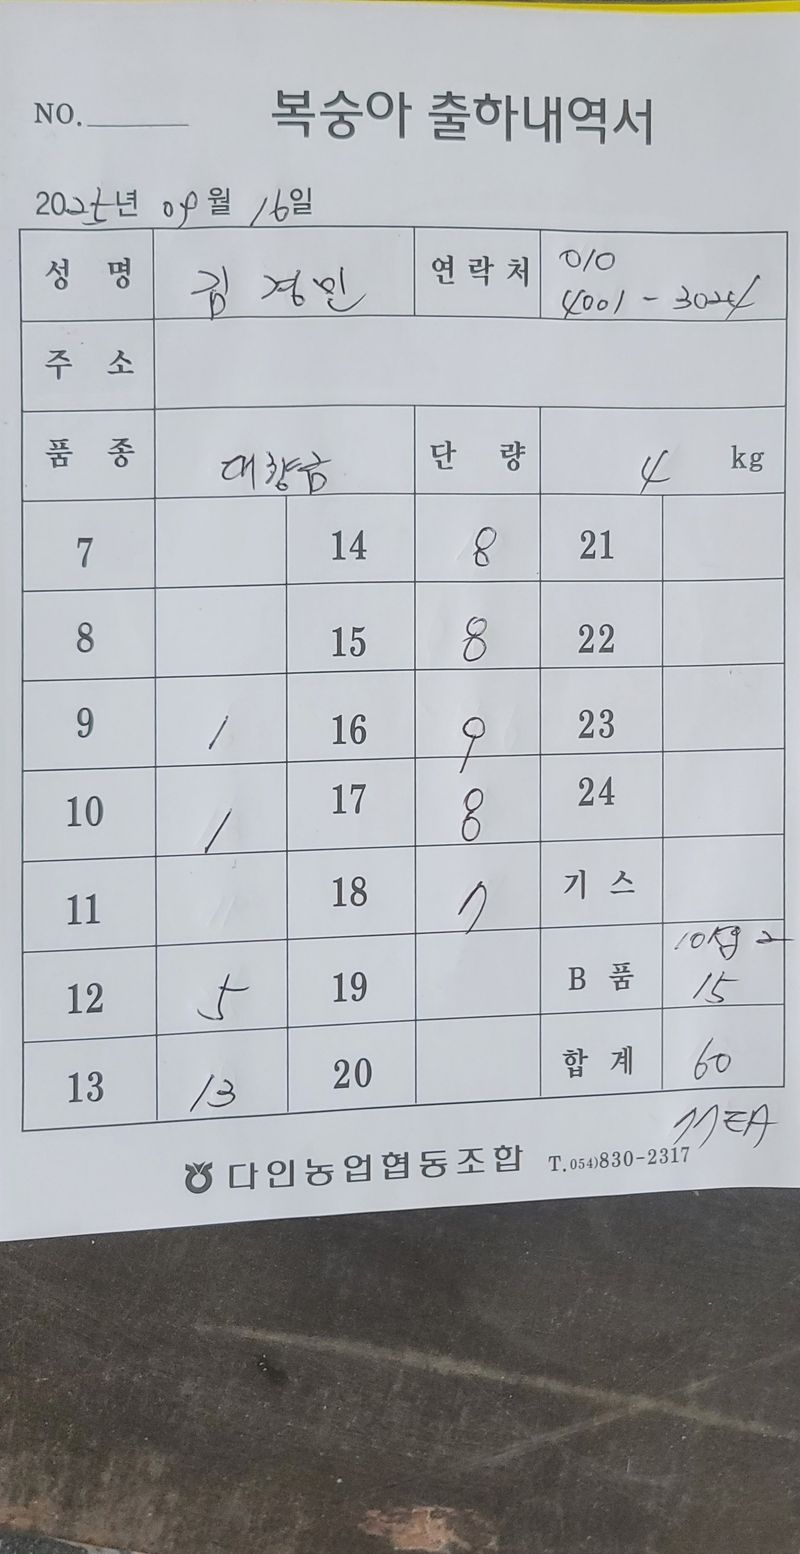 NO.
복숭아 출하내역서
2025년 09월 16일
성 명 김경민 연락처 010
4001-3024
주 소
품 종 대향금 단 량 4 kg
7 14 8 21
8 15 8 22
9 1 16 9 23
10 1 17 8 24
11 18 7 기 스
12 5 19 B 품 10kg 2
15
13 13 20 합 계 60
77EA
다인농업협동조합 T.054)830-2317